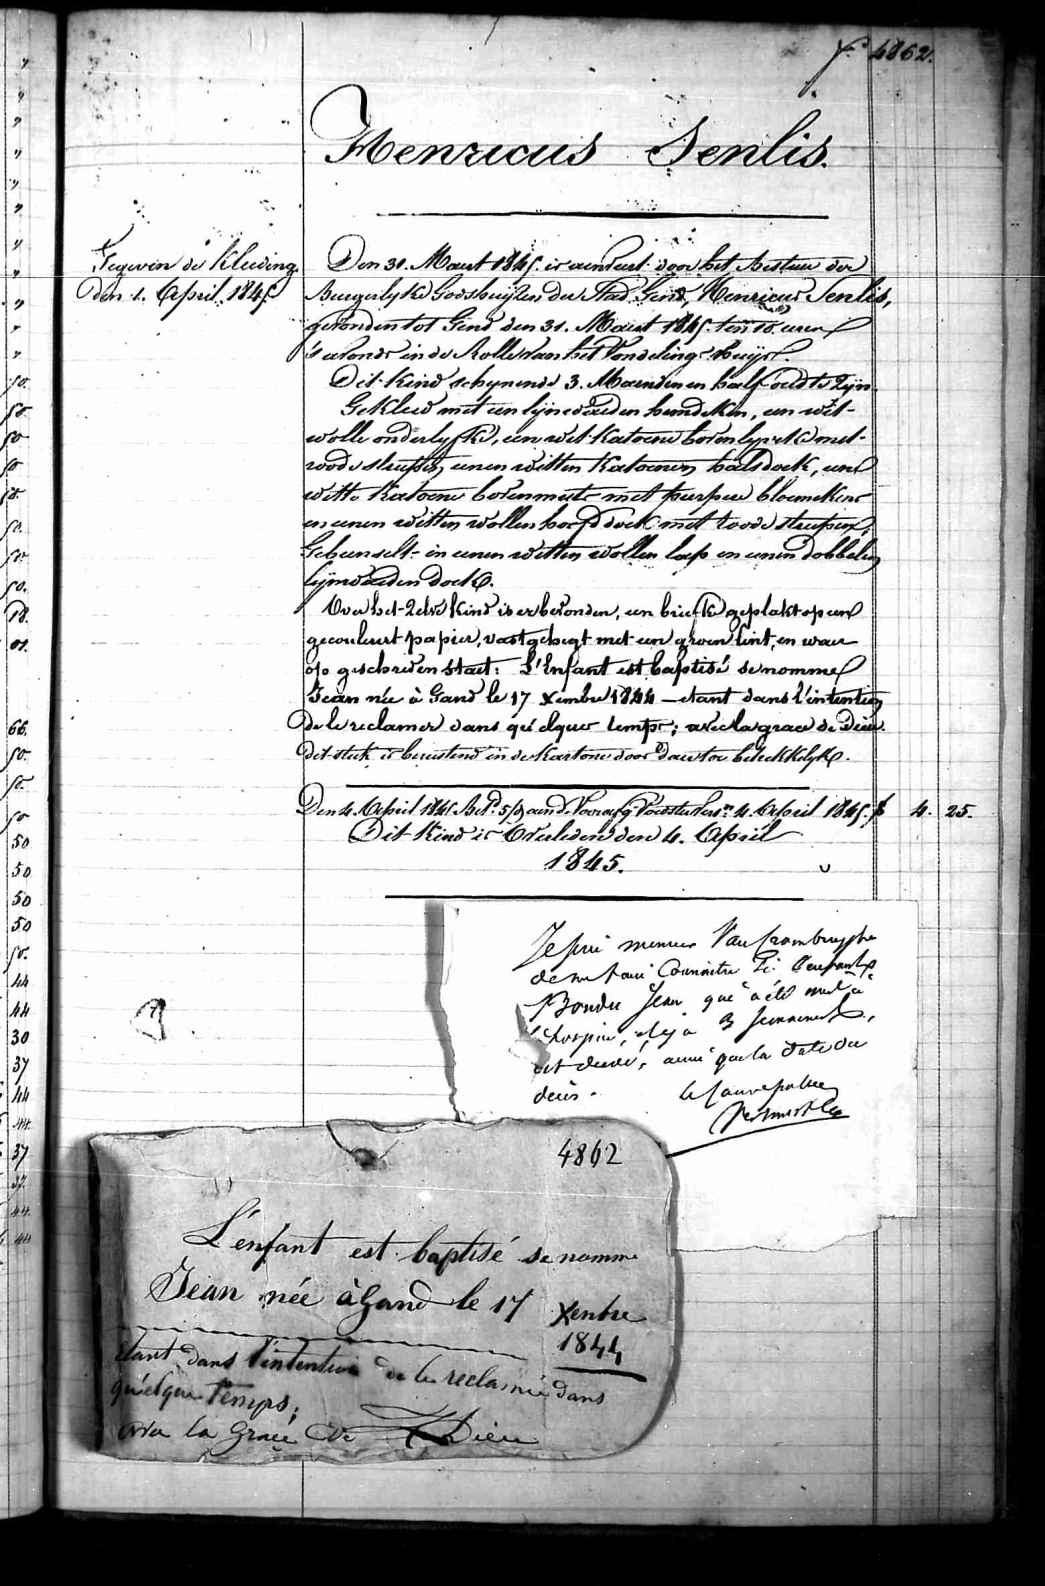 f. 4862.
Henricus Senlis.
Gegeven de Kleeding
den 1. April 1845
Den 31. Maart 1845. is aenveert door het bestuur der
Burgerlyke Godshuyzen der Stad Gend, Henricus Senlis,
gevonden tot Gend den 31. Maart 1845. ten 10. uren
's avonds in de Rolle van het Vondelinge-huys.
Dit Kind schynende 3. Maenden en half oud te Zyn.
Gekleed met een lynwaeden hemdeken, een wit-
wolle onderlyfke, een wit Katoene bovenlyfke met-
roode streepen, eenen witten Katoenen halsdoek, een
witte Katoene bovenmuts met purper bloemekens
en eenen witten wollen hoofddoek met roode streepen,
Gebunselt in eenen witten wollen lap en eenen dobbelen
lynwaeden doek.
Over het Zelve Kind is er bevonden, een briefke geplakt op een
gecouleurt papier, vastgehegt met een groen lint, en waer
op geschreven staet: L'Enfant est baptisé se nomme
Jean née à Gand le 17 Xembre 1844 — etant dans l'intention
de le reclamer dans quélques temps; avec la grace de Dieu.
Dit stuk is berustend in de Kartons door daertoe betrekkelyk.
Den 4. April 1845. Bet.d 5/9 aen de Voedster 4. April 1845. f 4. 25.
Dit Kind is Overleden den 4. April
1845.
Je prie monsieur Van Crombrugghe
de me faire Connaitre Si l'enfant
Bondu Jean que a été mis à
l'hospice, deja 3 semaines,
est decedé, ainsi que la date du
décès.
le
4862
L'enfant est baptisé se nomme
Jean née à Gand le 17 Xembre
1844
étant dans l'intention de le reclamée dans
quélque temps;
avec la Grace de Dieu